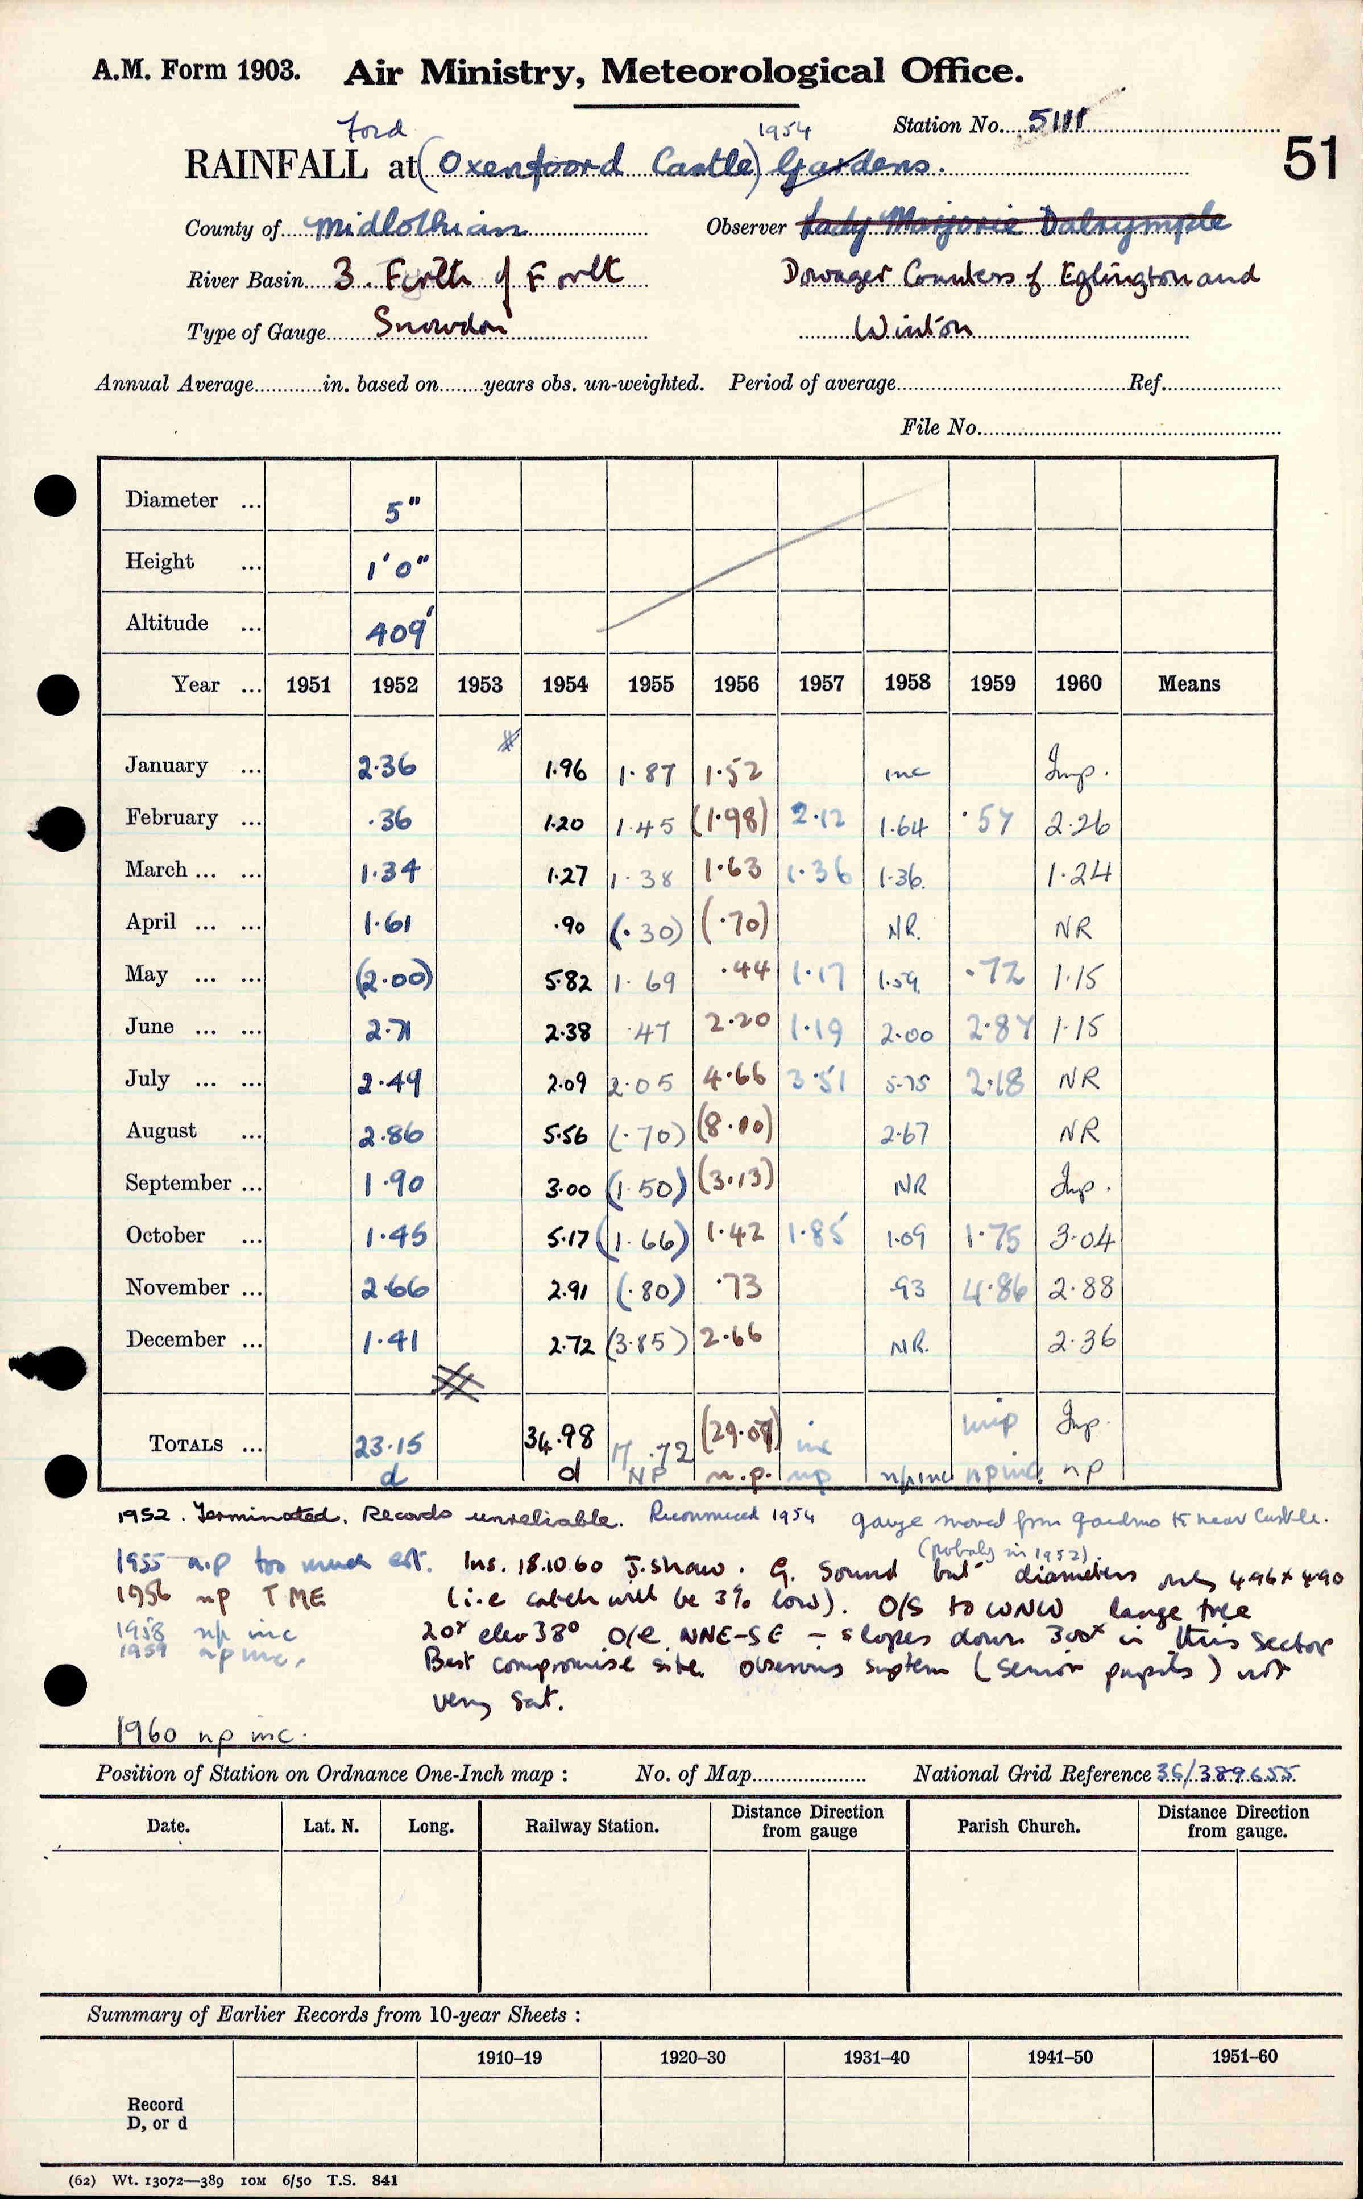 A.M. Form 1903. Air Ministry, Meteorological Office.
Station No. 5111
51
Ford 1954
RAINFALL at (Oxenfoord Castle) Gardens.
County of Midlothian Observer Lady Marjorie Dalrymple
River Basin 3. Firth of Forth Dowager Countess of Eglington and
Type of Gauge Snowdon Winton
Annual Average in. based on years obs. un-weighted. Period of average Ref.
File No.
Diameter ... 5"
Height ... 1'0"
Altitude ... 409'
Year ... 1951 1952 1953 1954 1955 1956 1957 1958 1959 1960 Means
January ... 2.36 1.96 1.87 1.52 inc Imp.
February ... .36 1.20 1.45 (1.98) 2.12 1.64 .57 2.26
March ... ... 1.34 1.27 1.38 1.63 1.36 1.36 1.24
April ... ... 1.61 .90 (.30) (.70) NR. NR
May ... ... (2.00) 5.82 1.69 .44 1.17 1.59 .72 1.15
June ... ... 2.71 2.38 .47 2.20 1.19 2.00 2.87 1.15
July ... ... 2.49 2.09 2.05 4.66 3.51 5.75 2.18 NR
August ... 2.86 5.56 (.70) (8.10) 2.67 NR
September ... 1.90 3.00 (1.50) (3.13) NR Imp.
October ... 1.45 5.17 (1.66) 1.42 1.85 1.09 1.75 3.04
November ... 2.66 2.91 (.80) .73 .93 4.86 2.88
December ... 1.41 2.72 (3.85) 2.66 NR. 2.36
TOTALS ... 23.15 34.98 17.72 (29.07) inc imp Imp.
d d NP n.p. np np inc np inc. np
1952. Terminated. Records unreliable. Recommenced 1954 gauge moved from gardens to near Castle.
(probably in 1952).
1955 n.p too much est. Ins. 18.10.60 J. Shaw. G. Sound but diameters only 4.96 x 4.90
1956 np TME (i.e catch will be 3% low). O/S to WNW large tree
1958 np inc 20x elev 38° O/E NNE-SE - slopes down 300x in this sector
1959 np inc. Best compromise site. Observing system (senior pupils) not
very sat.
1960 np inc.
Position of Station on Ordnance One-Inch map : No. of Map National Grid Reference 36/389655
Date. Lat. N. Long. Railway Station. Distance Direction from gauge Parish Church. Distance Direction from gauge.
Summary of Earlier Records from 10-year Sheets :
1910–19 1920–30 1931–40 1941–50 1951–60
Record
D, or d
(62) Wt. 13072—389 10M 6/50 T.S. 841